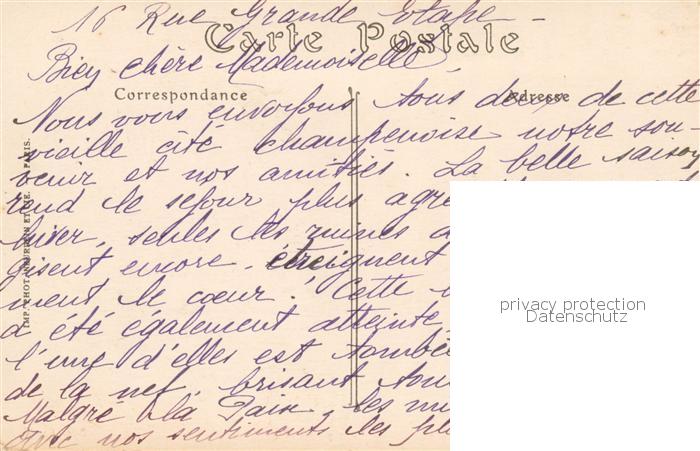 16 Rue Grande Etape -
Carte Postale
Bien chère Mademoiselle,
Correspondance
Adresse
Nous vous envoyons tous deux de cette
vieille cité champenoise notre sou-
venir et nos amitiés. La belle saison
rend le séjour plus agré
hiver, seules les ruines
gisent encore, étreignent
ment le cœur. Cette
a été également atteinte
l'une d'elles est tombée
de la nef brisant tou
Malgré la Paix, les
avec nos sentiments les pl
PARIS.
privacy protection
Datenschutz